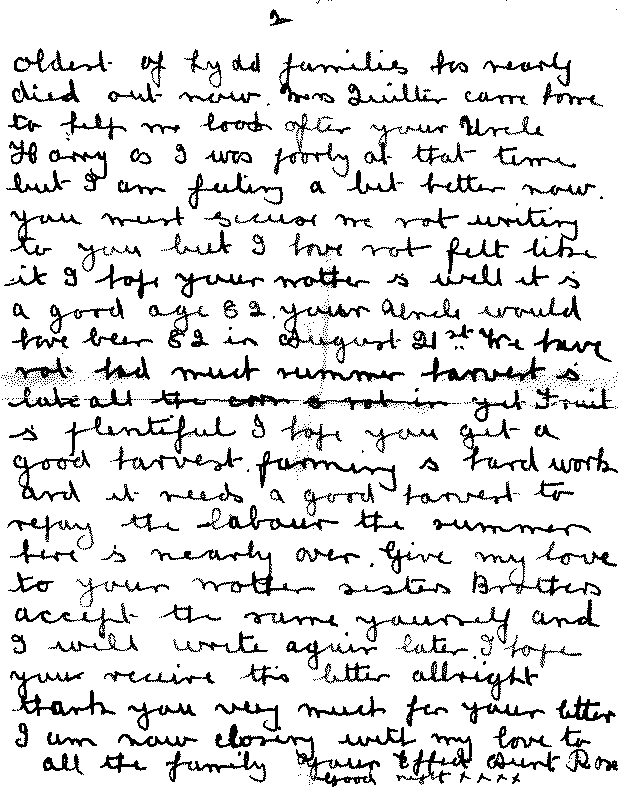 2
oldest of Lydd families has nearly
died out now. Mrs Quilter came home
to help me look after your Uncle
Harry as I was poorly at that time
but I am feeling a bit better now.
you must scuse me not writing
to you but I have not felt like
it I hope your mother is well it is
a good age 82. your Uncle would
have been 82 in August 21st We have
not had much summer harvest is
late all the corn is not in yet Fruit
is plentiful I hope you get a
good harvest. farming is hard work
and it needs a good harvest to
repay the labour the summer
here is nearly over. Give my love
to your mother sisters Brothers
accept the same yourself and
I will write again later. I hope
your receive this letter allright
thank you very much for your letter
I am now closing with my love to
all the family your Affec Aunt Rose
Good night x x x x